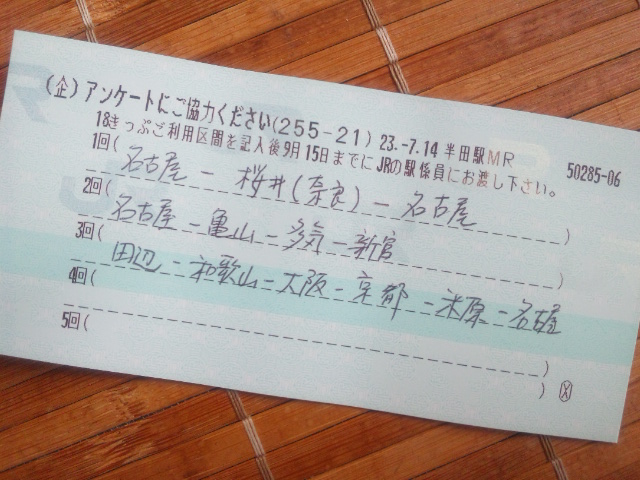 (企)アンケートにご協力ください(255-21) 23.-7.14 半田駅MR
18きっぷご利用区間を記入後9月15日までにJRの駅係員にお渡し下さい。 50285-06
1回( 名古屋 - 桜井(奈良) - 名古屋 )
2回( 名古屋 - 亀山 - 多気 - 新宮 )
3回( 田辺 - 和歌山 - 大阪 - 京都 - 米原 - 名古屋
4回( )
5回( ) 〤